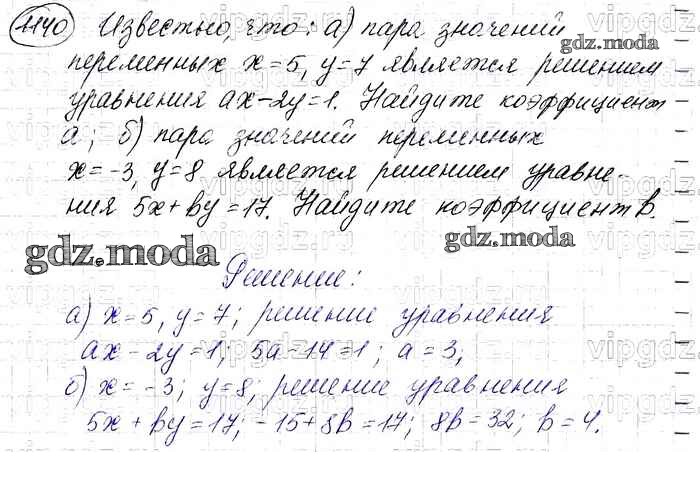 1140 Известно, что: а) пара значений
переменных x=5, y=7 является решением
уравнения ax-2y=1. Найдите коэффициент
а; б) пара значений переменных
x=-3, y=8 является решением уравне-
ния 5x+by=17. Найдите коэффициент b.
Решение:
а) x=5, y=7; решение уравнения
ax-2y=1; 5a-14=1; a=3;
б) x=-3; y=8; решение уравнения
5x+by=17; -15+8b=17; 8b=32; b=4.
gdz.moda
gdz.moda
gdz.moda
vipgdz.ru